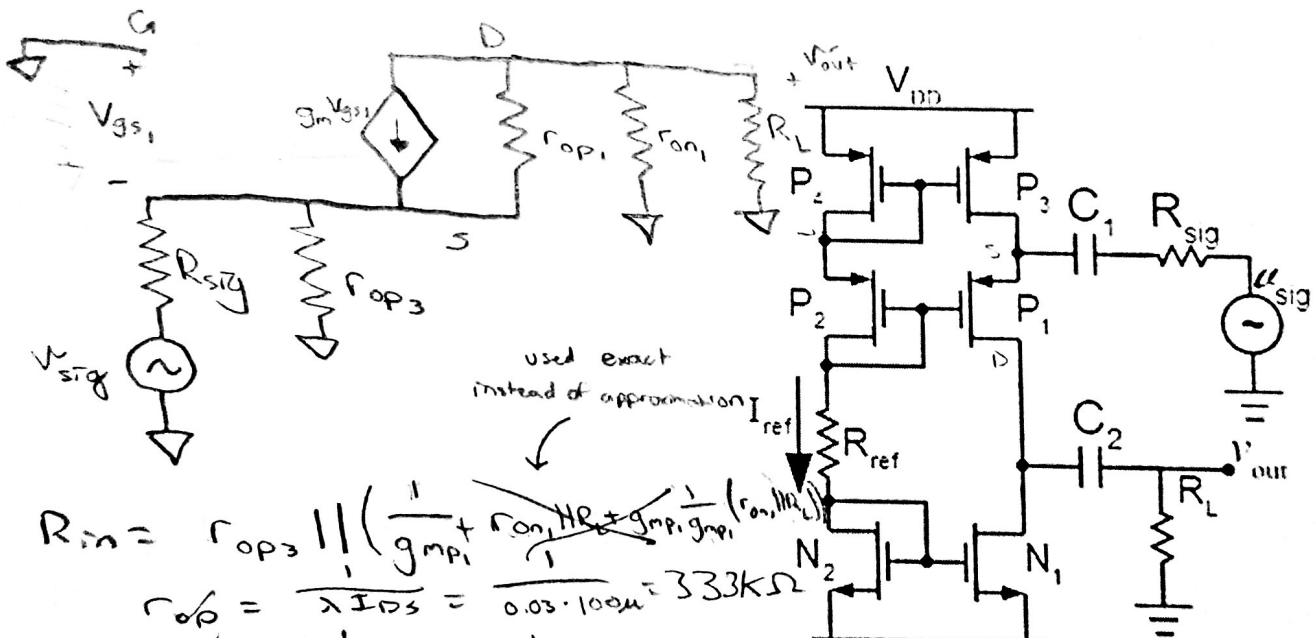 G
+
Vgs₁
-
D
gmVgs₁
rop₁
ron₁
R_L
+ vout
S
Rsig
rop₃
vsig
used exact
instead of approximation
Rin = rop₃ || ( 1/gmp₁ + ron₁||R_L + gmp₁ 1/gmp₁ (ron₁||R_L)
rop = 1/λIDS = 1/0.03·100μ = 333KΩ
V_DD
P₂
P₃
C₁
R_sig
S
sig
P₂
P₁
D
I_ref
R_ref
C₂
out
R_L
N₂
N₁